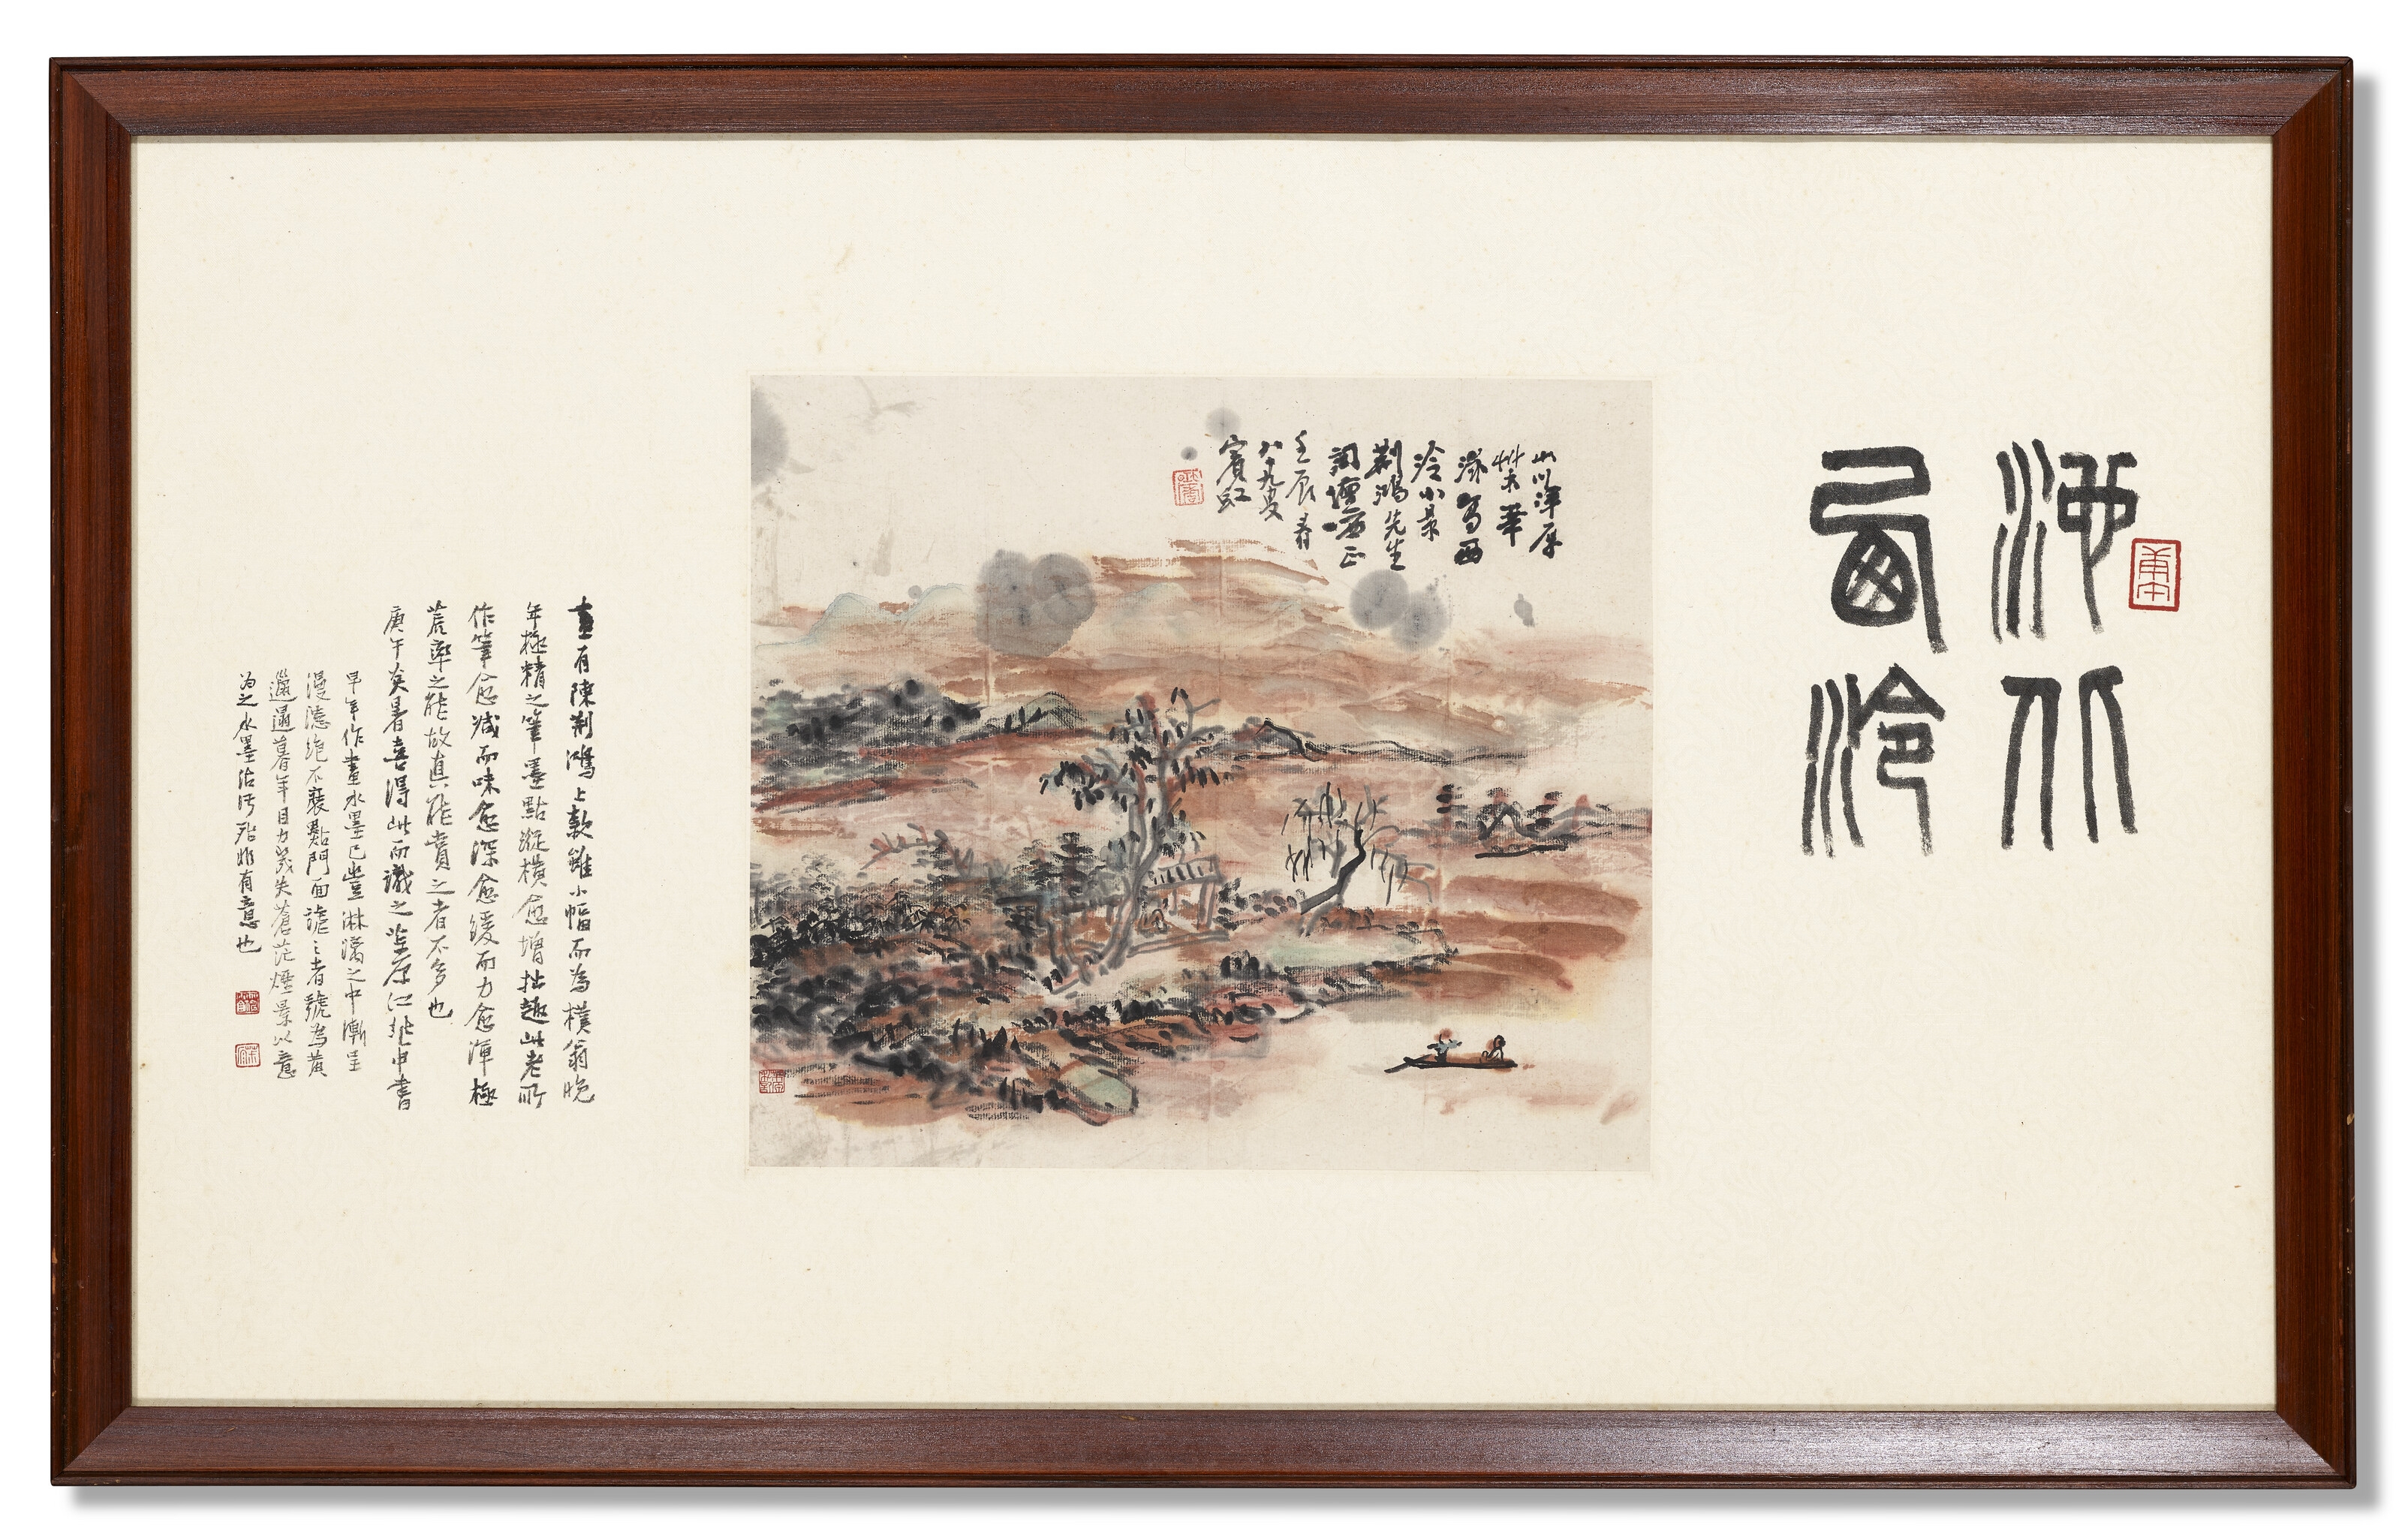 西泠
山川渾厚
艸木華
滋寫西
泠小景
荊鴻先生
詞壇正
壬辰春
八十九叟
賓虹
畫有陳荊鴻上款雖小幅而為樸翁晚
年極精之筆墨點縱橫愈增拙趣此老所
作筆愈減而味愈深愈緩而力愈渾極
荒率之能故真能賞之者不多也
庚午炎暑喜得此而識之茮原江兆申書
早年作畫水墨已豐淋漓之中漸呈
漫漶絕不裝點門面詭之者號為黃
邋遢暮年目力幾失蒼茫煙景以意
為之水墨沾污殆非有意也